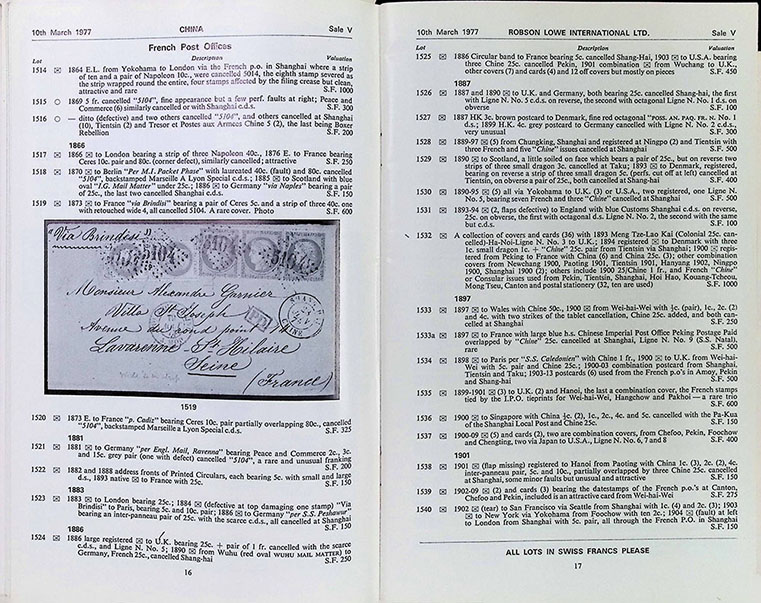 10th March 1977 CHINA Sale V
French Post Offices
Lot Description Valuation
1514 ✉ 1864 E.L. from Yokohama to London via the French p.o. in Shanghai where a strip
of ten and a pair of Napoleon 10c., were cancelled 5014, the eighth stamp severed as
the strip wrapped round the entire, four stamps affected by the filing crease but clean,
attractive and rare S.F. 1000
1515 ○ 1869 5 fr. cancelled "5104", fine appearance but a few perf. faults at right; Peace and
Commerce (6) similarly cancelled or with Shanghai c.d.s. S.F. 300
1516 ○ — ditto (defective) and two others cancelled "5104", and others cancelled at Shanghai
(10), Tientsin (2) and Tresor et Postes aux Armees Chine 5 (2), the last being Boxer
Rebellion S.F. 200
1866
1517 ✉ 1866 ✉ to London bearing a strip of three Napoleon 40c., 1876 E. to France bearing
Ceres 10c. pair and 80c. (corner defect), similarly cancelled; attractive S.F. 250
1518 ✉ 1870 ✉ to Berlin "Per M.I. Packet Phase" with laureated 40c. (fault) and 80c. cancelled
"5104", backstamped Marseille A Lyon Special c.d.s.; 1885 ✉ to Scotland with blue
oval "I.G. Mail Matter" under 25c.; 1886 ✉ to Germany "via Naples" bearing a pair
of 25c., the last two cancelled Shanghai c.d.s. S.F. 150
1519 ✉ 1873 ✉ to France "via Brindisi" bearing a pair of Ceres 5c. and a strip of three 40c. one
with retouched wide 4, all cancelled 5104. A rare cover. Photo S.F. 600
"Via Brindisi"
5104
Monsieur Alexandre Garnier
Villa St Joseph
PD
Avenue du rond point
Lavarenne St Hilaire
Seine
(France)
1519
1520 ✉ 1873 E. to France "p. Cadiz" bearing Ceres 10c. pair partially overlapping 80c., cancelled
"5104", backstamped Marseille a Lyon Special c.d.s. S.F. 325
1881
1521 ✉ 1881 ✉ to Germany "per Engl. Mail, Ravenna" bearing Peace and Commerce 2c., 3c.
and 15c. grey pair (one with defect) cancelled "5104", a rare and unusual franking
S.F. 200
1522 ✉ 1882 and 1888 address fronts of Printed Circulars, each bearing 5c. with small and large
d.s., 1893 native ✉ to France with 25c. S.F. 150
1883
1523 ✉ 1883 ✉ to London bearing 25c.; 1884 ✉ (defective at top damaging one stamp) "Via
Brindisi" to Paris, bearing 5c. and 10c. pair; 1886 ✉ to Germany "per S.S. Peshawur"
bearing an inter-panneau pair of 25c. with the scarce c.d.s., all cancelled at Shanghai
S.F. 150
1886
1524 ✉ 1886 large registered ✉ to U.K. bearing 25c. + pair of 1 fr. cancelled with the scarce
c.d.s., and Ligne N. No. 5; 1890 ✉ from Wuhu (red oval WUHU MAIL MATTER) to
Germany, French 25c., cancelled Shang-hai S.F. 250
16
10th March 1977 ROBSON LOWE INTERNATIONAL LTD. Sale V
Lot Description Valuation
1525 ✉ 1886 Circular band to France bearing 5c. cancelled Shang-Hai, 1903 ✉ to U.S.A. bearing
three Chine 25c. cancelled Pekin, 1901 combination ✉ from Wuchang to U.K.,
other covers (7) and cards (4) and 12 off covers but mostly on pieces S.F. 450
1887
1526 ✉ 1887 and 1890 ✉ to U.K. and Germany, both bearing 25c. cancelled Shang-hai, the first
with Ligne N No. 5 c.d.s. on reverse, the second with octagonal Ligne N No. 1 d.s. on
obverse S.F. 100
1527 ✉ 1887 HK 3c. brown postcard to Denmark, fine red octagonal "POSS. AN. PAQ. FR. N. No. 1
d.s.; 1899 H.K. 4c. grey postcard to Germany cancelled with Ligne N No. 2 c.d.s.,
very unusual S.F. 300
1528 ✉ 1889-97 ✉ (5) from Chungking, Shanghai and registered at Ningpo (2) and Tientsin with
three French and five "Chine" issues cancelled at Shanghai S.F. 500
1529 ✉ 1890 ✉ to Scotland, a little soiled on face which bears a pair of 25c., but on reverse two
strips of three small dragon 3c. cancelled at Taku; 1893 ✉ to Denmark, registered,
bearing on reverse a strip of three small dragon 5c. (perfs. cut off at left) cancelled at
Tientsin, on obverse a pair of 25c., both cancelled at Shang-hai S.F. 400
1530 ✉ 1890-95 ✉ (5) all via Yokohama to U.K. (3) or U.S.A., two registered, one Ligne N.
No. 5, bearing seven French and three "Chine" cancelled at Shanghai S.F. 500
1531 ✉ 1893-94 ✉ (2, flaps defective) to England with blue Customs Shanghai c.d.s. on reverse,
25c. on obverse, the first with octagonal d.s. Ligne N. No. 2, the second with the same
but c.d.s. S.F. 100
1532 ✉ A collection of covers and cards (36) with 1893 Meng Tze-Lao Kai (Colonial 25c. can-
celled)-Ha-Noi-Ligne N. No. 3 to U.K.; 1894 registered ✉ to Denmark with three
lc. small dragon 1c. + "Chine" 25c. pair from Tientsin via Shanghai; 1900 ✉ regis-
tered from Peking to France with China (6) and China 25c. (3); other combination
covers from Newchang 1900, Paoting 1901, Tientsin 1901, Hanyang 1902, Ningpo
1900, Shanghai 1900 (2); others include 1900 25/Chine 1 fr., and French "Chine"
or Consular issues used from Pekin, Tientsin, Shanghai, Hoi Hao, Kouang-Tcheou,
Mong Tseu, Canton and postal stationery (32, ten are used) S.F. 1000
1897
1533 ✉ 1897 ✉ to Wales with Chine 50c., 1900 ✉ from Wei-hai-Wei with ½c. (pair), 1c., 2c. (2)
and 4c. with two strikes of the tablet cancellation, Chine 25c. added, and both can-
celled at Shanghai S.F. 250
1533a ✉ 1897 ✉ to France with large blue h.s. Chinese Imperial Post Office Peking Postage Paid
overlapped by "Chine" 25c. cancelled at Shanghai, Ligne N. No. 9 (S.S. Natal),
rare S.F. 500
1534 ✉ 1898 ✉ to Paris per "S.S. Caledonien" with Chine 1 fr., 1900 ✉ to U.K. from Wei-hai-
Wei with 5c. pair and Chine 25c.; 1900-03 combination postcard from Shanghai,
Tientsin and Taku; 1903-13 postcards (6) used from the French p.o's in Amoy, Pekin
and Shang-hai S.F. 500
1535 ✉ 1899-1901 ✉ (3) to U.K. (2) and Hanoi, the last a combination cover, the French stamps
tied by the I.P.O. tieprints for Wei-hai-Wei, Hangchow and Pakhoi — a rare trio
S.F. 600
1536 ✉ 1900 ✉ to Singapore with China ½c. (2), 1c., 2c., 4c. and 5c. cancelled with the Pa-Kua
of the Shanghai Local Post and Chine 25c. S.F. 150
1537 ✉ 1900-09 ✉ (5) and cards (2), two are combination covers, from Chefoo, Pekin, Foochow
and Chengting, two via Japan to U.S.A., Ligne N No. 6, 7 and 8 S.F. 400
1901
1538 ✉ 1901 ✉ (flap missing) registered to Hanoi from Paoting with China 1c. (3), 2c. (2), 4c.
inter-panneau pair, 5c. and 10c., partially overlapped by three Chine 25c. cancelled
at Shanghai, some minor faults but unusual and attractive S.F. 150
1539 ✉ 1902-09 ✉ (2) and cards (3) bearing the datestamps of the French p.o.'s at Canton,
Chefoo and Pekin, included is an attractive card from Wei-hai-Wei S.F. 275
1540 ✉ 1902 ✉ (tear) to San Francisco via Seattle from Shanghai with 1c. (4) and 2c. (3); 1903
✉ to New York via Yokohama from Foochow with ten 2c.; 1904 ✉ (fault) at left
to London from Shanghai with 5c. pair, all through the French P.O. in Shanghai
S.F. 150
ALL LOTS IN SWISS FRANCS PLEASE
17